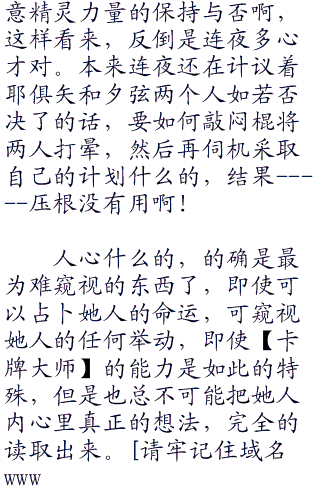 意精灵力量的保持与否啊，
这样看来，反倒是连夜多心
才对。本来连夜还在计议着
耶俱矢和夕弦两个人如若否
决了的话，要如何敲闷棍将
两人打晕，然后再伺机采取
自己的计划什么的，结果---
--压根没有用啊！
人心什么的，的确是最
为难窥视的东西了，即使可
以占卜她人的命运，可窥视
她人的任何举动，即使【卡
牌大师】的能力是如此的特
殊，但是也总不可能把她人
内心里真正的想法，完全的
读取出来。[请牢记住域名
www